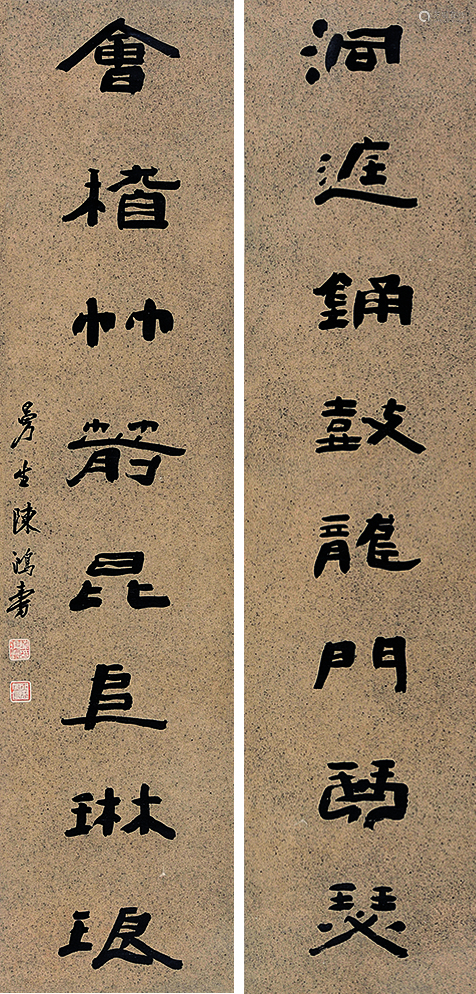 洞庭銿鼓龍門琴瑟
會稽竹箭昆丘琳琅
曼生陳鴻壽